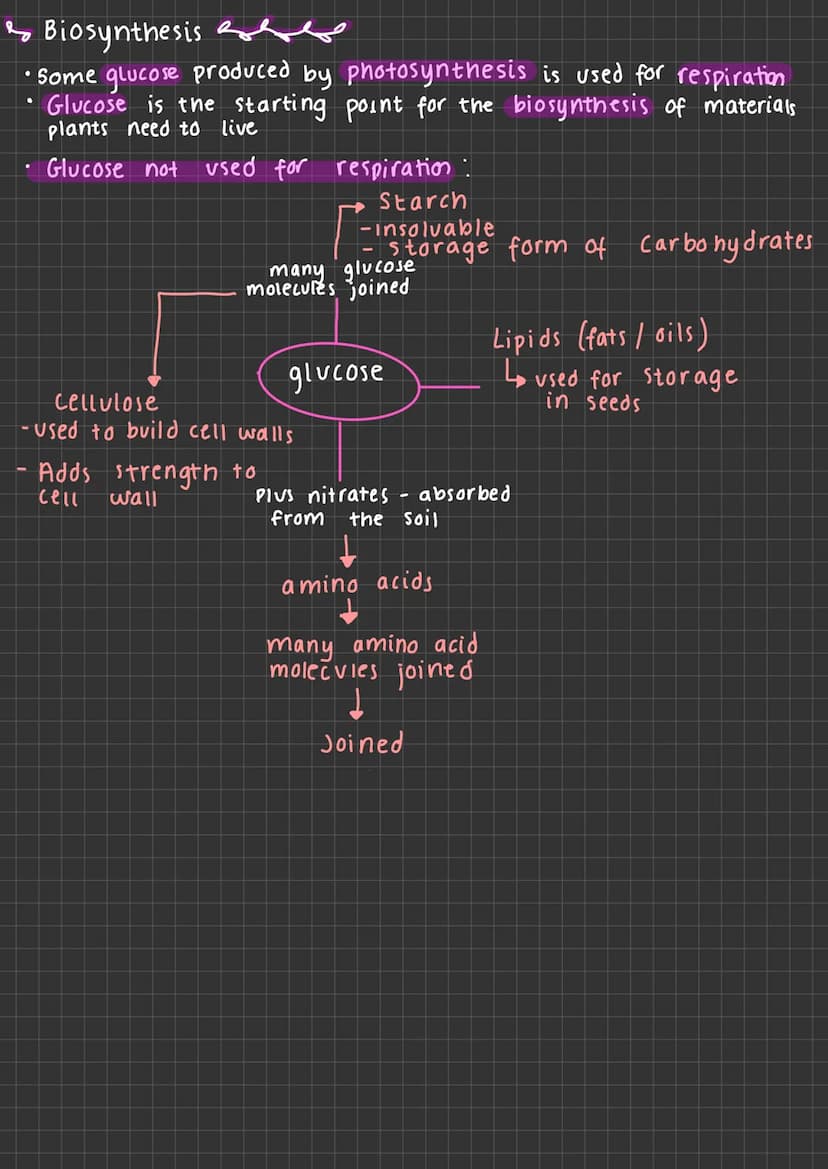 Biosynthesis
• Some glucose produced by photosynthesis is used for respiration
• Glucose is the starting point for the biosynthesis of materials
plants need to live
• Glucose not used for respiration:
Starch
-insolvable
- storage form of carbohydrates
many glucose
molecules joined
Lipids (fats / oils)
↳ used for storage
in seeds
glucose
Cellulose
-used to build cell walls
- Adds strength to
cell wall
Plus nitrates - absorbed
from the soil
amino acids
many amino acid
molecules joined
Joined